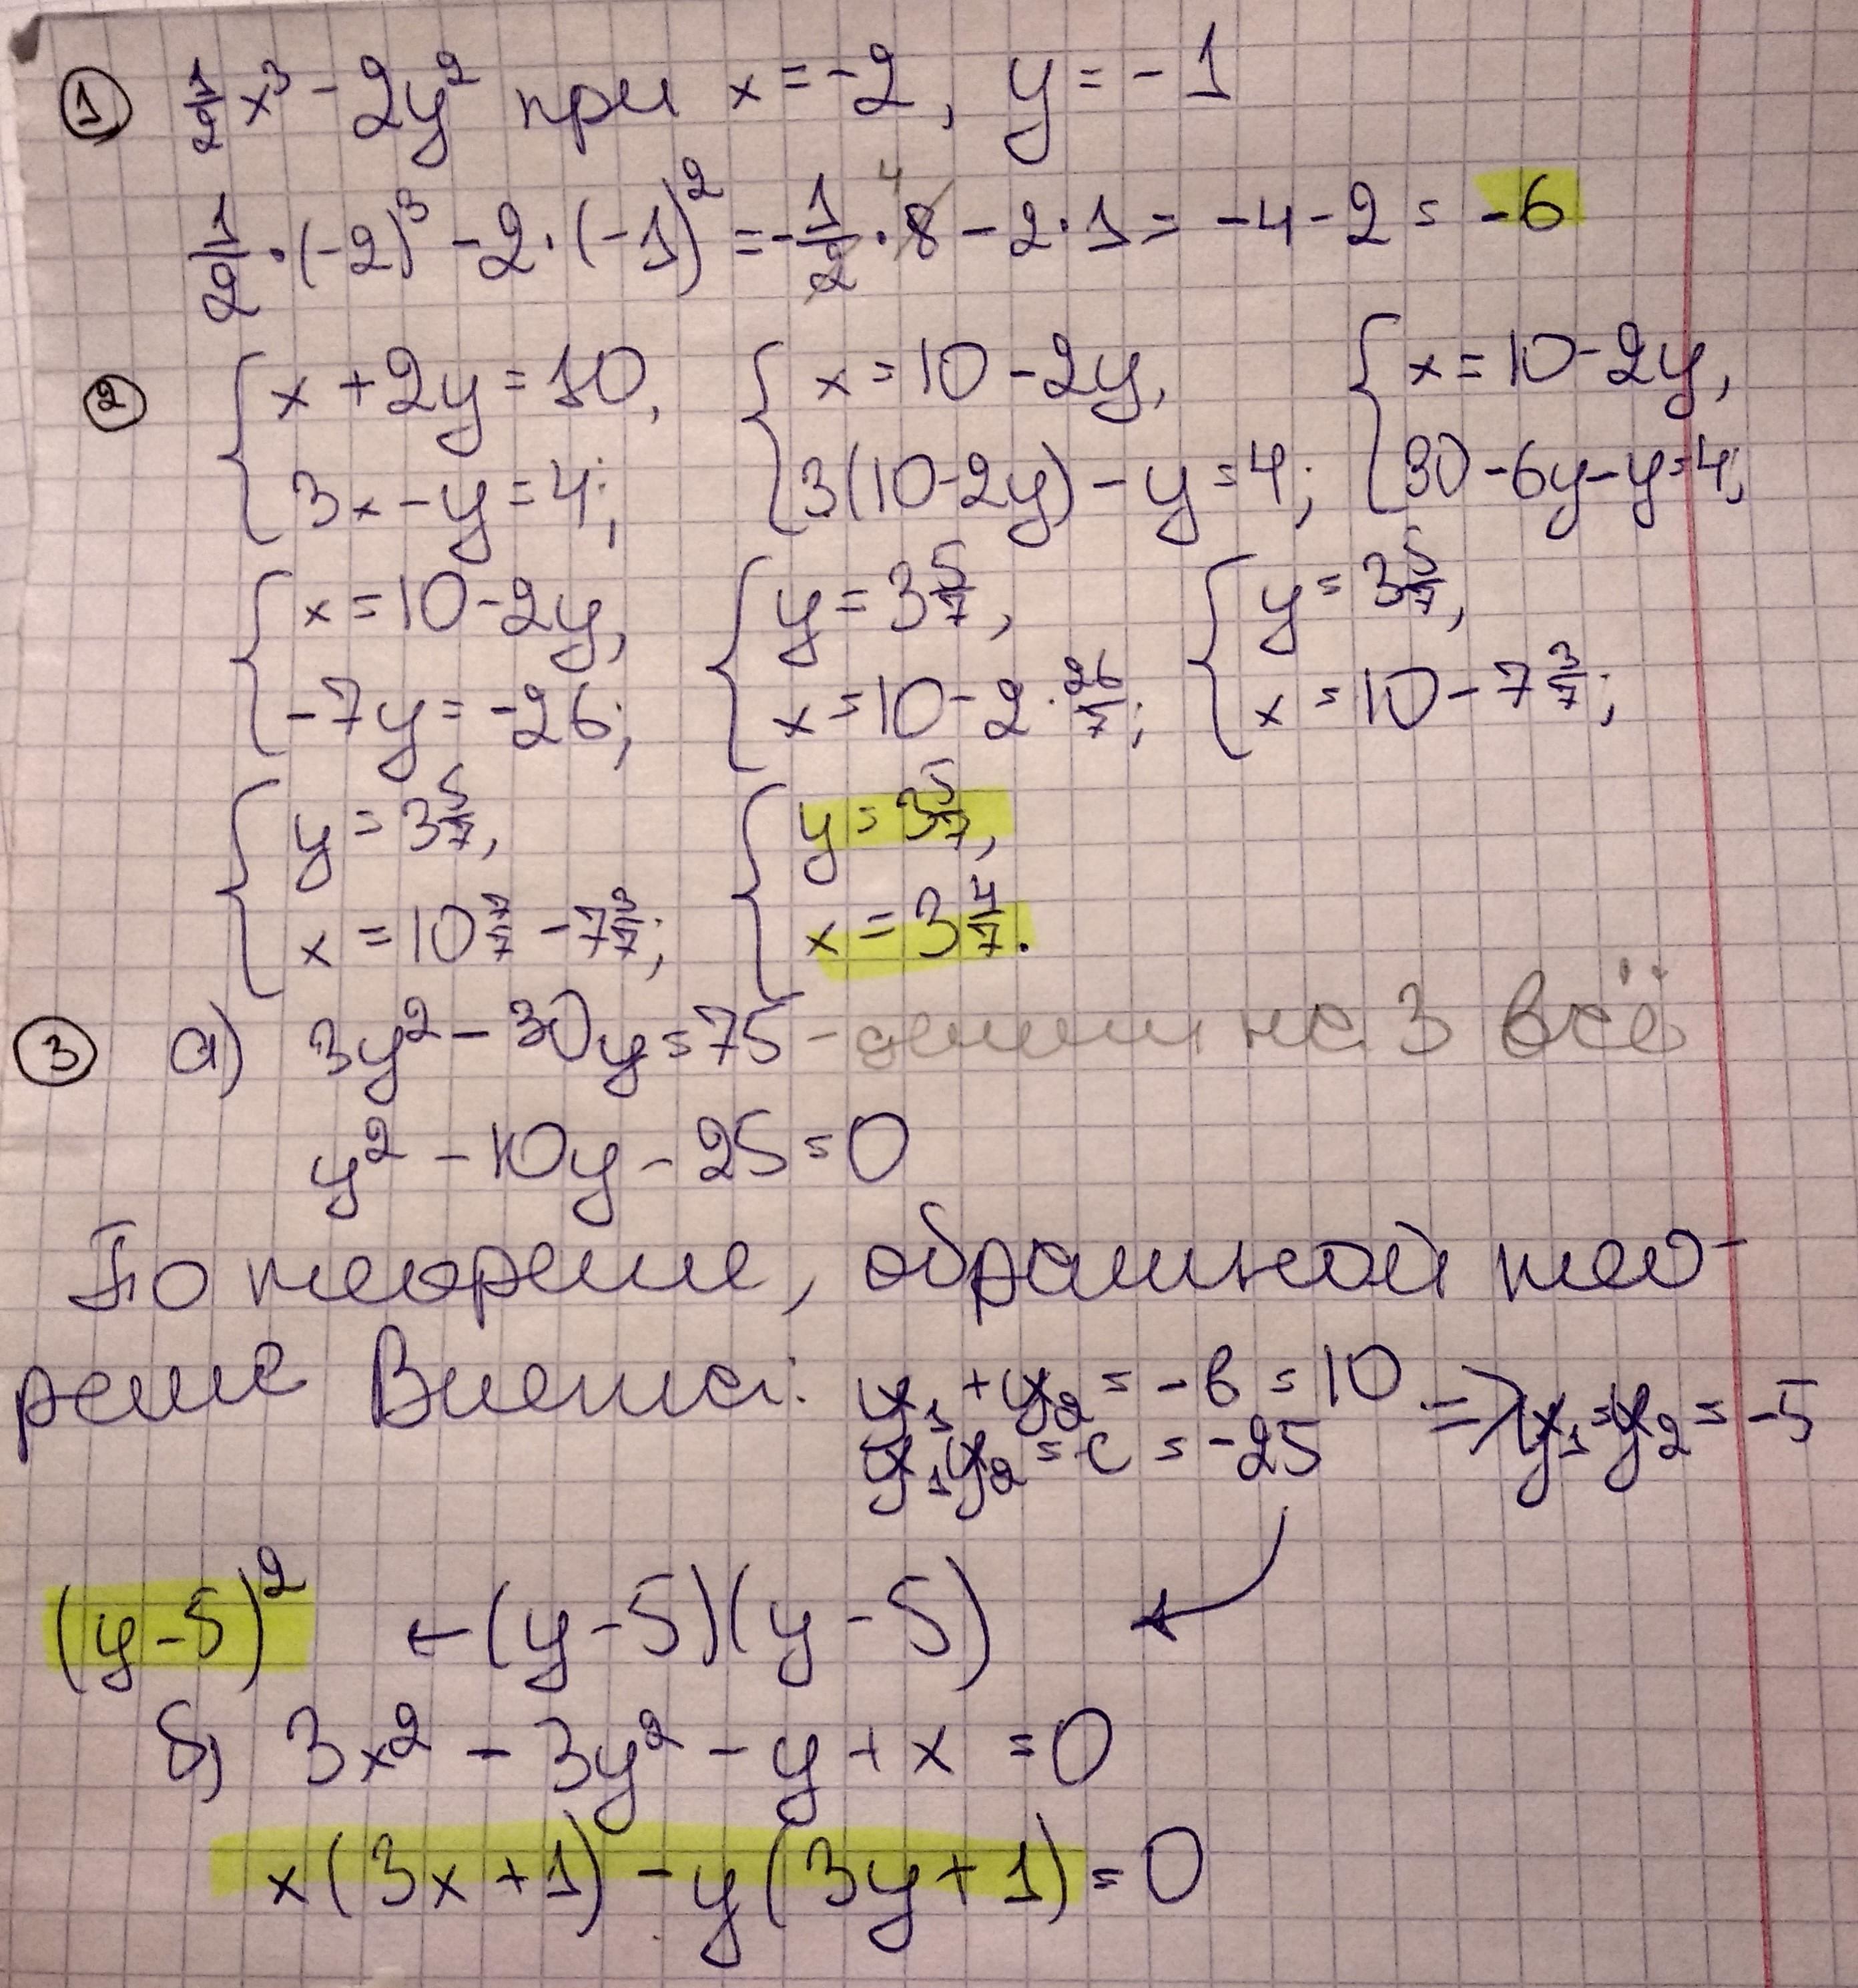 ① 1/2 x³ - 2y² при x = -2, y = -1
1/2 · (-2)³ - 2 · (-1)² = -1/2 · 8 4 - 2 · 1 = -4 - 2 = -6
② { x + 2y = 10, 3x - y = 4; { x = 10 - 2y, 3(10 - 2y) - y = 4; { x = 10 - 2y, 30 - 6y - y = 4;
{ x = 10 - 2y, -7y = -26; { y = 3 5/7, x = 10 - 2 · 26/7; { y = 3 5/7, x = 10 - 7 3/7;
{ y = 3 5/7, x = 10 7/7 - 7 3/7; { y = 3 5/7, x = 3 4/7.
③ а) 3y² - 30y = 75 - делим на 3 всё
y² - 10y - 25 = 0
По теореме, обратной тео-
реме Виета: y₁ + y₂ = -b = 10
y₁y₂ = c = -25 => y₁ = y₂ = -5
(y - 5)² ← (y - 5)(y - 5) ←
б) 3x² - 3y² - y + x = 0
x(3x + 1) - y(3y + 1) = 0